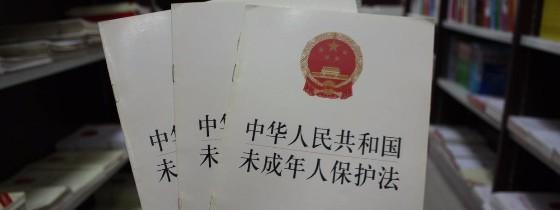 中华人民共和国
未成年人保护法
中华
未
中
未